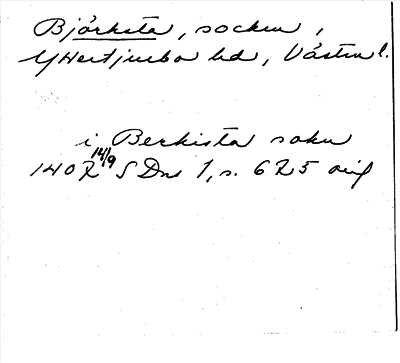 Björksta, socken,
Yttertjurbo hd, Västm l.
i Berkista sokn
1407 14/9 SDns 1, s. 675 orig